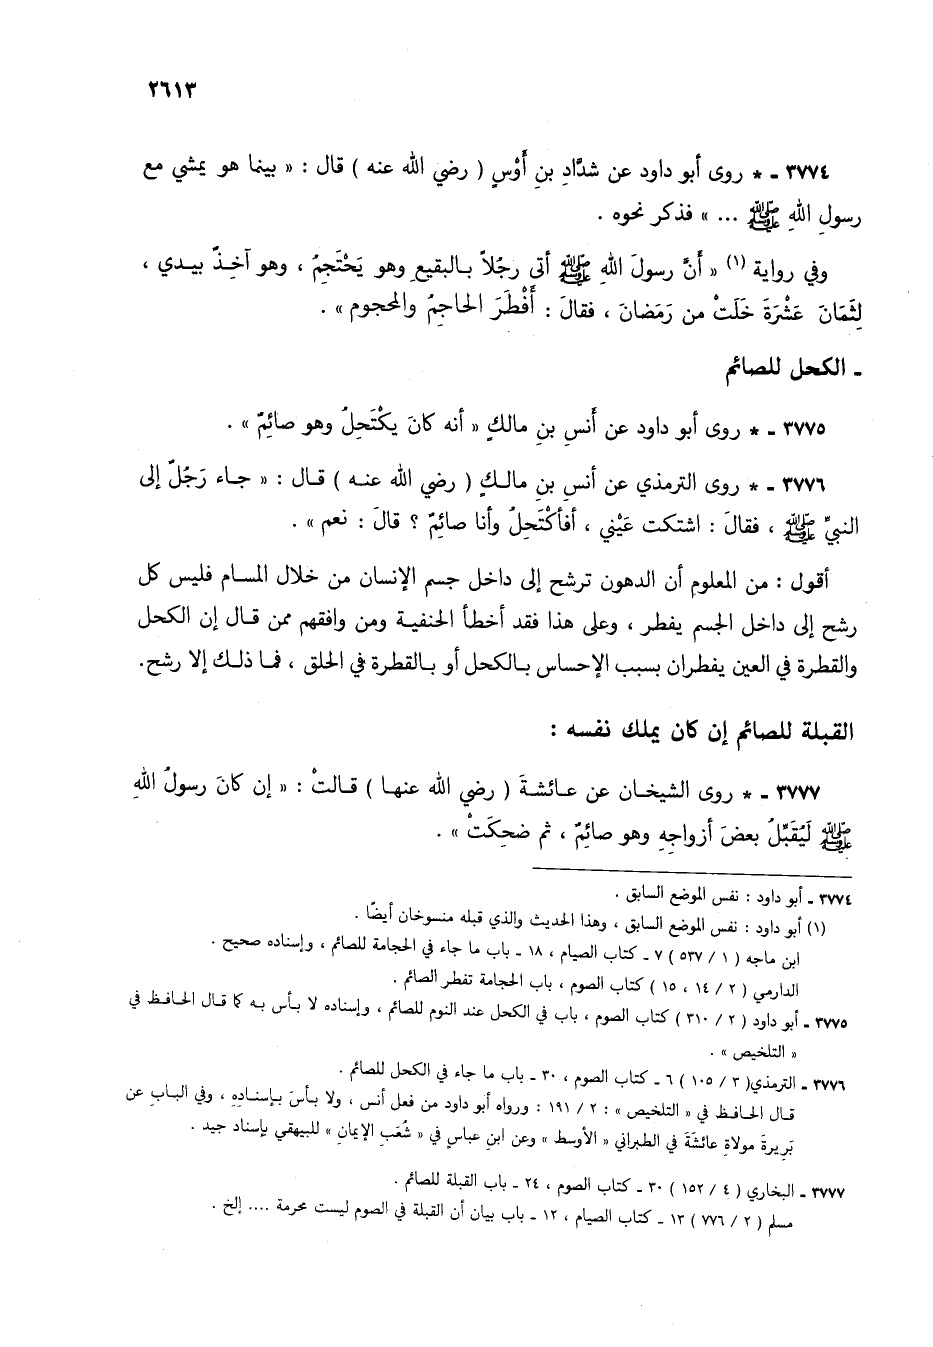 ٢٦١٣
٣٧٧٤ ـ * روى أبو داود عن شدَّادِ بنِ أَوْسٍ ( رضي الله عنه ) قال : « بينما هو يمشي مع
رسولِ اللهِ ﷺ ... » فذكر نحوه .
وفي رواية (١) « أَنَّ رسولَ اللهِ ﷺ أتى رجُلاً بالبقيعِ وهو يَحْتَجِمُ ، وهو آخِذٌ بيدي ،
لِثَمَانَ عَشْرَةَ خَلَتْ من رَمَضانَ ، فقالَ : أَفْطَرَ الحاجِمُ والمحجوم » .
ـ الكحل للصائم
٣٧٧٥ ـ * روى أبو داود عن أَنسِ بنِ مالكٍ « أنه كانَ يكْتَحِلُ وهو صائِمٌ » .
٣٧٧٦ ـ * روى الترمذي عن أنسِ بنِ مالكٍ ( رضي الله عنه ) قال : « جاء رَجُلٌ إلى
النبيِّ ﷺ ، فقالَ : اشتكت عَيْني ، أفأكْتَحِلُ وأنا صائِمٌ ؟ قالَ : نعم » .
أقول : من المعلوم أن الدهون ترشح إلى داخل جسم الإنسان من خلال المسام فليس كل
رشح إلى داخل الجسم يفطر ، وعلى هذا فقد أخطأ الحنفية ومن وافقهم ممن قال إن الكحل
والقطرة في العين يفطران بسبب الإحساس بالكحل أو بالقطرة في الحلق ، فما ذلك إلا رشح.
القبلة للصائم إن كان يملك نفسه :
٣٧٧٧ ـ * روى الشيخان عن عائشةَ ( رضي الله عنها ) قالتْ : « إن كانَ رسولُ اللهِ
ﷺ لَيُقَبِّلُ بعضَ أزواجِهِ وهو صائِمٌ ، ثم ضحِكَتْ » .
٣٧٧٤ ـ أبو داود : نفس الموضع السابق .
(١) أبو داود : نفس الموضع السابق ، وهذا الحديث والذي قبله منسوخان أيضًا .
ابن ماجه ( ١ / ٥٣٧ ) ٧ ـ كتاب الصيام ، ١٨ ـ باب ما جاء في الحجامة للصائم ، وإسناده صحيح .
الدارمي ( ٢ / ١٤ ، ١٥ ) كتاب الصوم ، باب الحجامة تفطر الصائم .
٣٧٧٥ ـ أبو داود ( ٢ / ٣١٠ ) كتاب الصوم ، باب في الكحل عند النوم للصائم ، وإسناده لا بأس به كما قال الحافظ في
« التلخيص » .
٣٧٧٦ ـ الترمذي( ٣ / ١٠٥ ) ٦ ـ كتاب الصوم ، ٣٠ ـ باب ما جاء في الكحل للصائم .
قال الحافظ في « التلخيص » : ٢ / ١٩١ : ورواه أبو داود من فعل أنس ، ولا بأسَ بإسنادِهِ ، وفي البابِ عن
بَرِيرةَ مولاةِ عائشةَ في الطبراني « الأوسط » وعن ابنِ عباسٍ في « شُعَبِ الإيمانِ » للبيهقي بإسناد جيد .
٣٧٧٧ ـ البخاري ( ٤ / ١٥٢ ) ٣٠ ـ كتاب الصوم ، ٢٤ ـ باب القبلة للصائم .
مسلم ( ٢ / ٧٧٦ ) ١٣ ـ كتاب الصيام ، ١٢ ـ باب بيان أن القبلة في الصوم ليست محرمة .... إلخ .